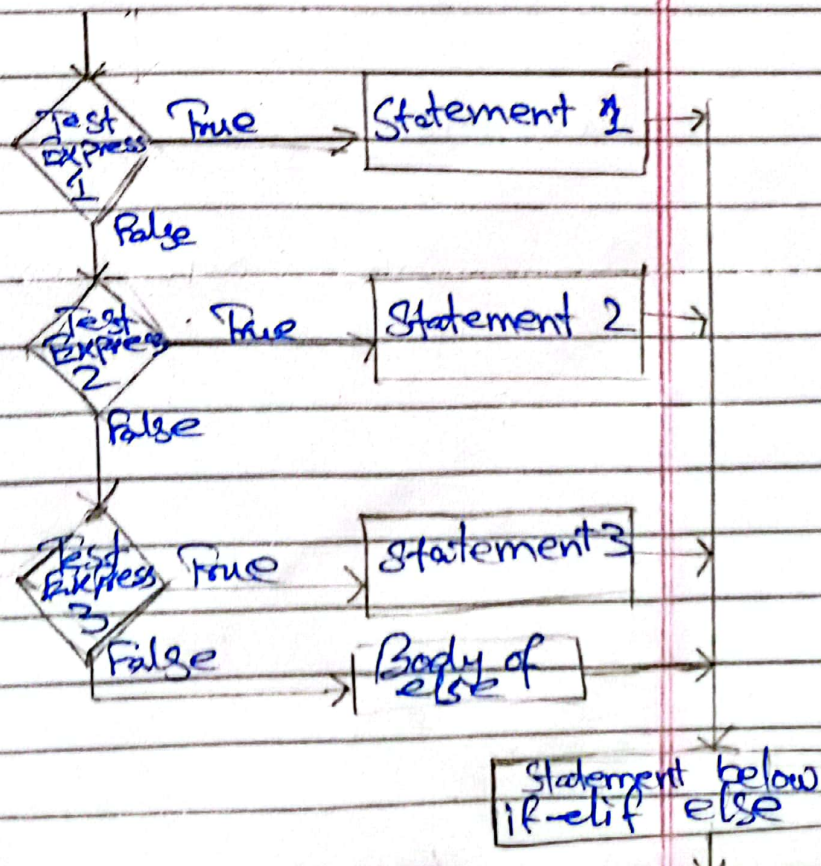 Test
Express
1
True
Statement 1
False
Test
Express
2
True
Statement 2
False
Test
Express
3
True
Statement 3
False
Body of
else
Statement below
if-elif else